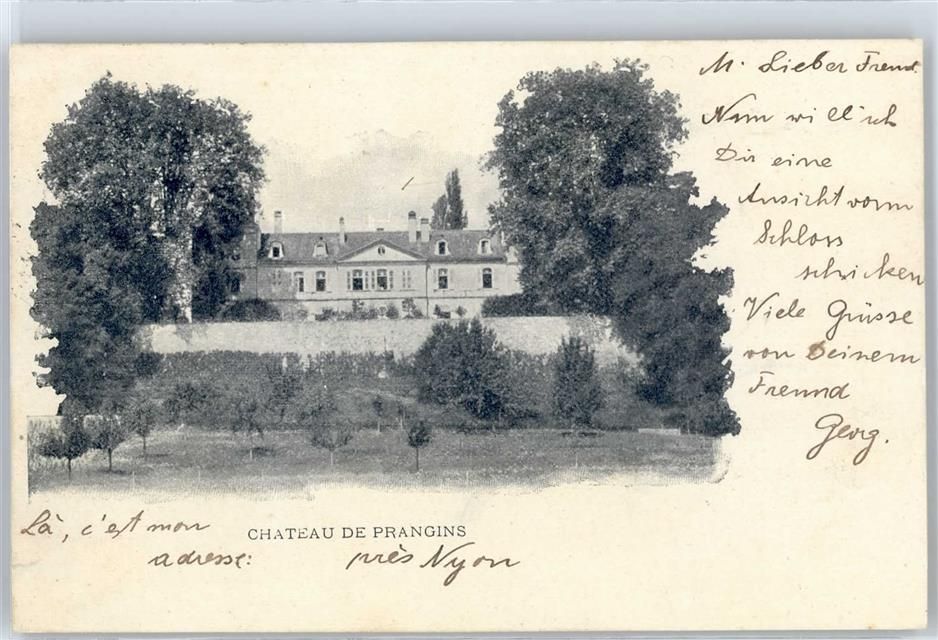 M. Lieber Freund
Nun will ich
Dir eine
Ansicht vom
Schloss
schicken
Viele Grüsse
von Deinem
Freund
Georg.
Là, c'est mon
adresse:
CHATEAU DE PRANGINS
près Nyon